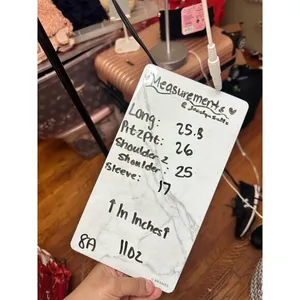 Measurements
Long: 25.8
Pit2Pit: 26
Shoulder 2
Shoulder: 25
Sleeve: 17
↑ In Inches ↑
8A 1102